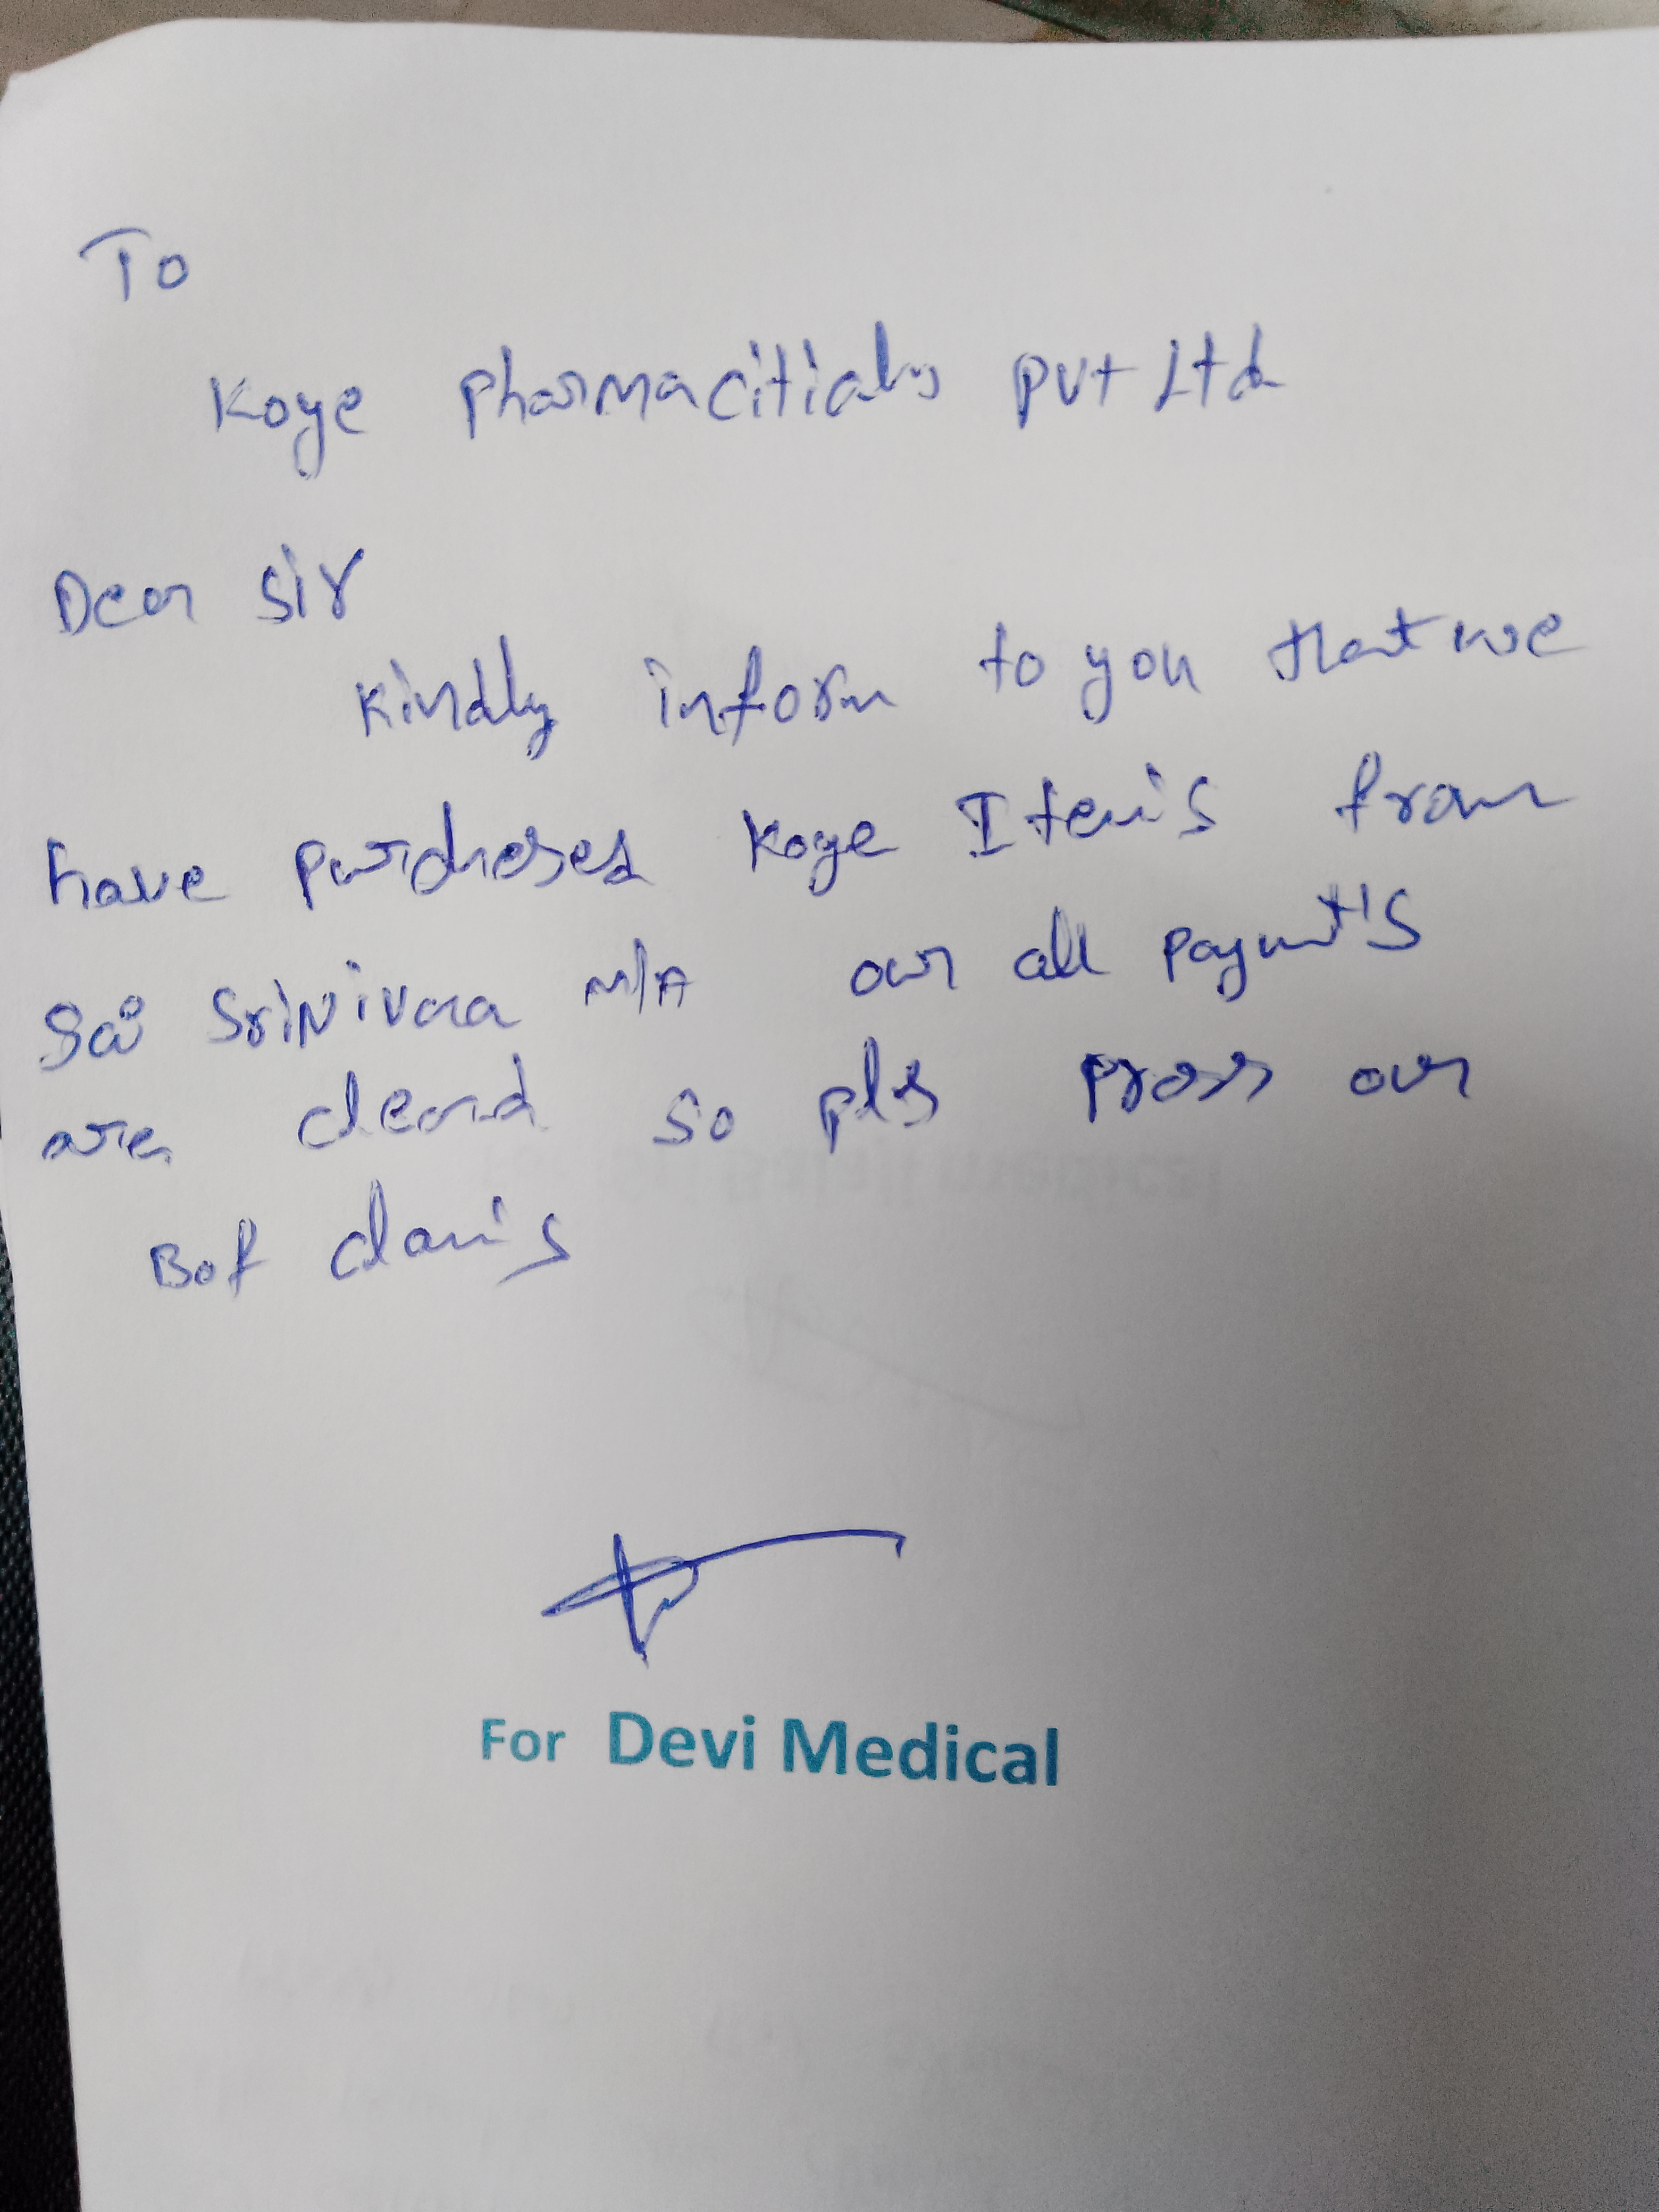 To
Koye Pharmacitials Pvt Ltd
Dear Sir
Kindly inform to you that we
have purchesed Koye Item's from
Sai Srinivasa M/A our all payment's
are cleard so pls our
Bof claim's
For Devi Medical